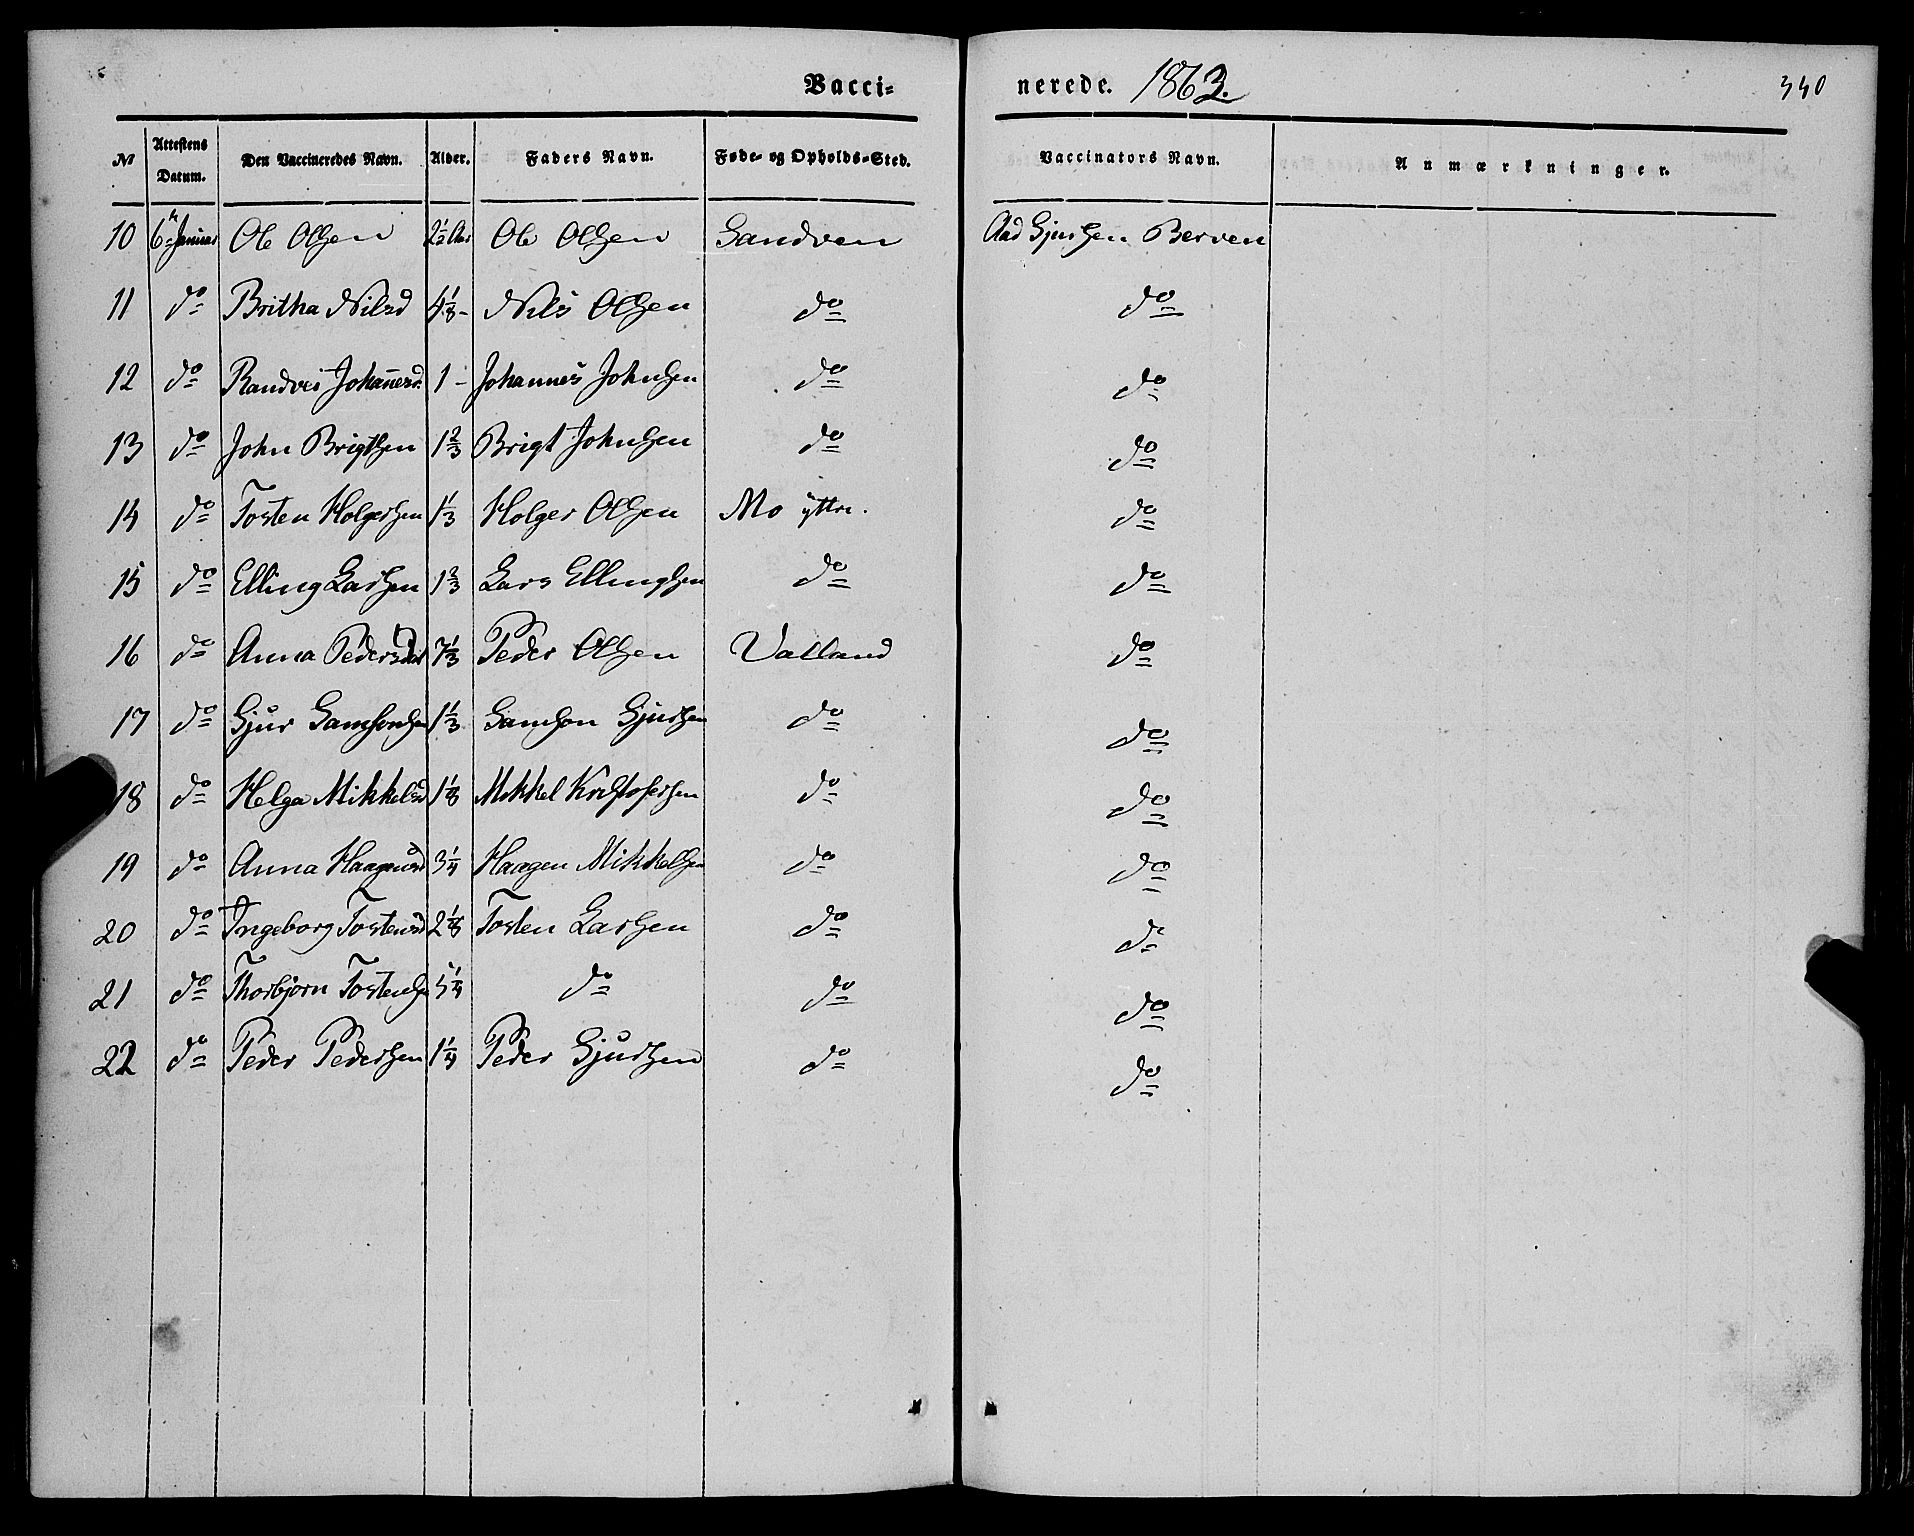 Vacci-nerede. 1863. 340
№ Attestens Datum. Den Vaccineredes Navn. Alder. Faders Navn. Føde- og Opholds-Sted. Vaccinators Navn. Anmærkninger.
10 6te Januar Ole Olsen 2½ Aar Ole Olsen Sandven Aad Sjursen Berven
11 do Britha Nilsd 4⅛ - Nils Olsen do do
12 do Randvei Johan̄esd. 1 - Johannes Johnsen do do
13 do John Brigtsen 1⅔ Brigt Johnsen do do
14 do Tosten Holgersen 1⅓ Holger Olsen Mo yttre. do
15 do Elling Larsen 1⅔ Lars Ellingsen do do
16 do Anna Pedersdat 7⅓ Peder Olsen Vatland do
17 do Sjur Samsonsen 1⅓ Samson Sjursen do do
18 do Helga Mikkelsd 1⅛ Mikkel Kristofersen do do
19 do Anna Haagensd 3¼ Haagen Mikkelsen do do
20 do Ingeborg Tostensd 2⅛ Tosten Larsen do do
21 do Thorbjørn Tostensen 5¼ do do do
22 do Peder Pedersen 1¼ Peder Sjursen do do